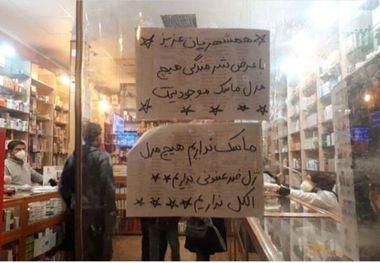 * همشهریان عزیز *
با عرض شرمندگی هیچ
مدل ماسک موجود نیست
ماسک نداریم هیچ مدل
ژل ضد عفونی نداریم **
الکل نداریم ***